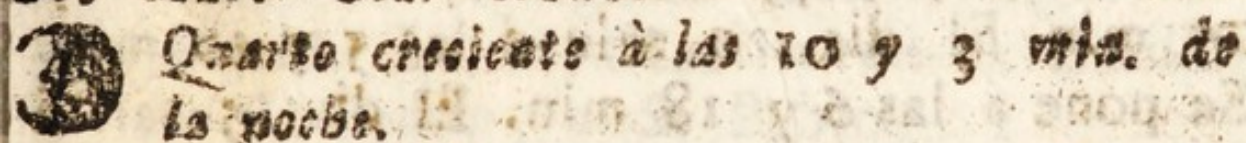 Quarto creciente à las 10 y 3 min. de
la noche.